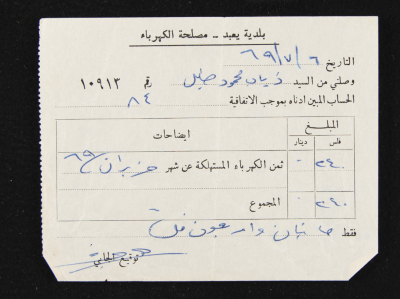 بلدية يعبد -- مصلحة الكهرباء
التاريخ ٦/٧/٦٩
وصلني من السيد ذياب محمود خليل رقم ١٠٩١٣
الحساب المبين ادناه بموجب الاتفاقية ٨٤
ايضاحات المبلغ
دينار فلس
ثمن الكهرباء المستهلكة عن شهر حزيران ٦٩ - ٢٤٠
المجموع - ٢٤٠
فقط مائتان واربعون فلس
توقيع الجابي